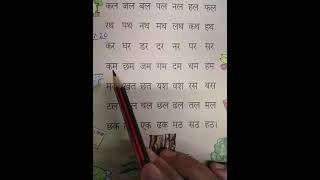 कल जल बल पल नल हल फल
रथ पथ नथ मथ लथ कथ हथ
कर घर डर दर नर पर सर
कम छम जम गम दम थम हम
खत छत यश वश रस बस
टल चल छल ढल तल मल
छक एक ढक मठ सठ हठ।